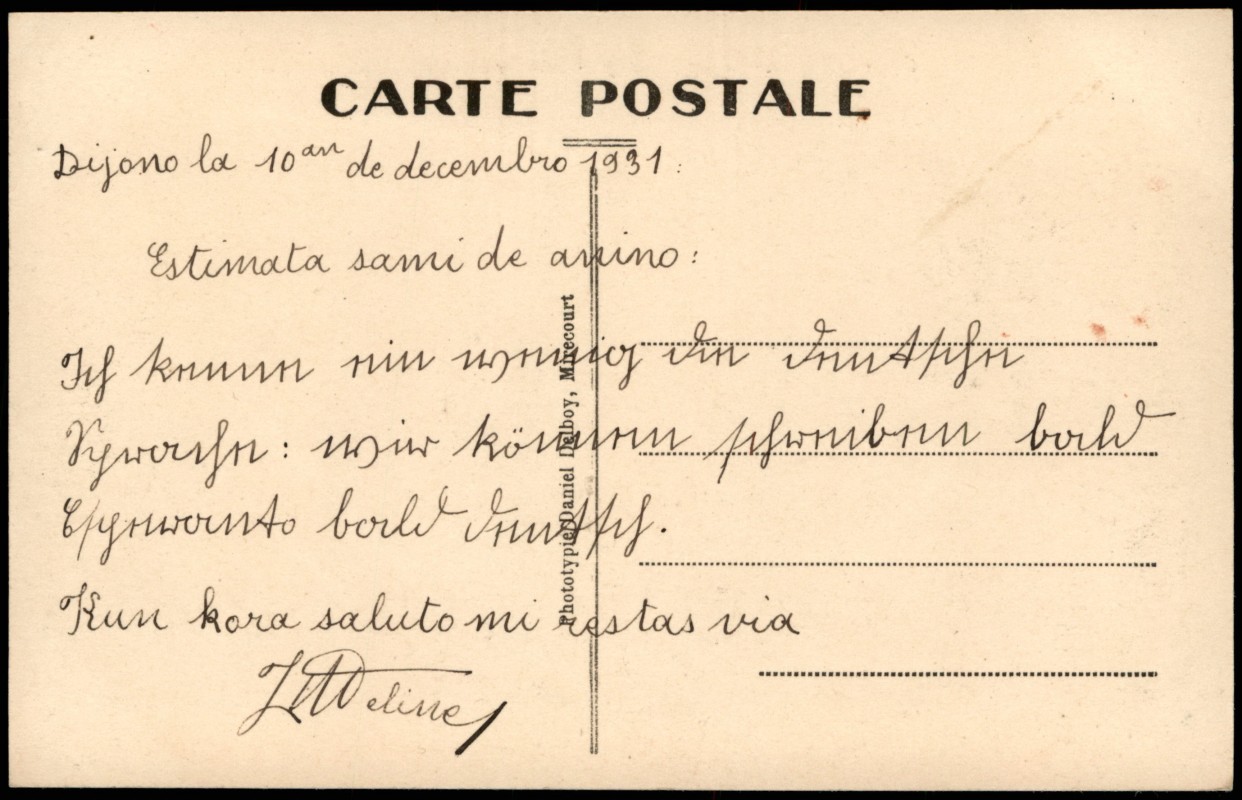 CARTE POSTALE
Dijono la 10an de decembro 1931:
Estimata samideanino:
Ich kenne ein wenig die deutsche
Sprache: wir können schreiben bald
Esperanto bald deutsch.
Kun kora saluto mi restas via
Phototypie Daniel Delboy, Mirecourt